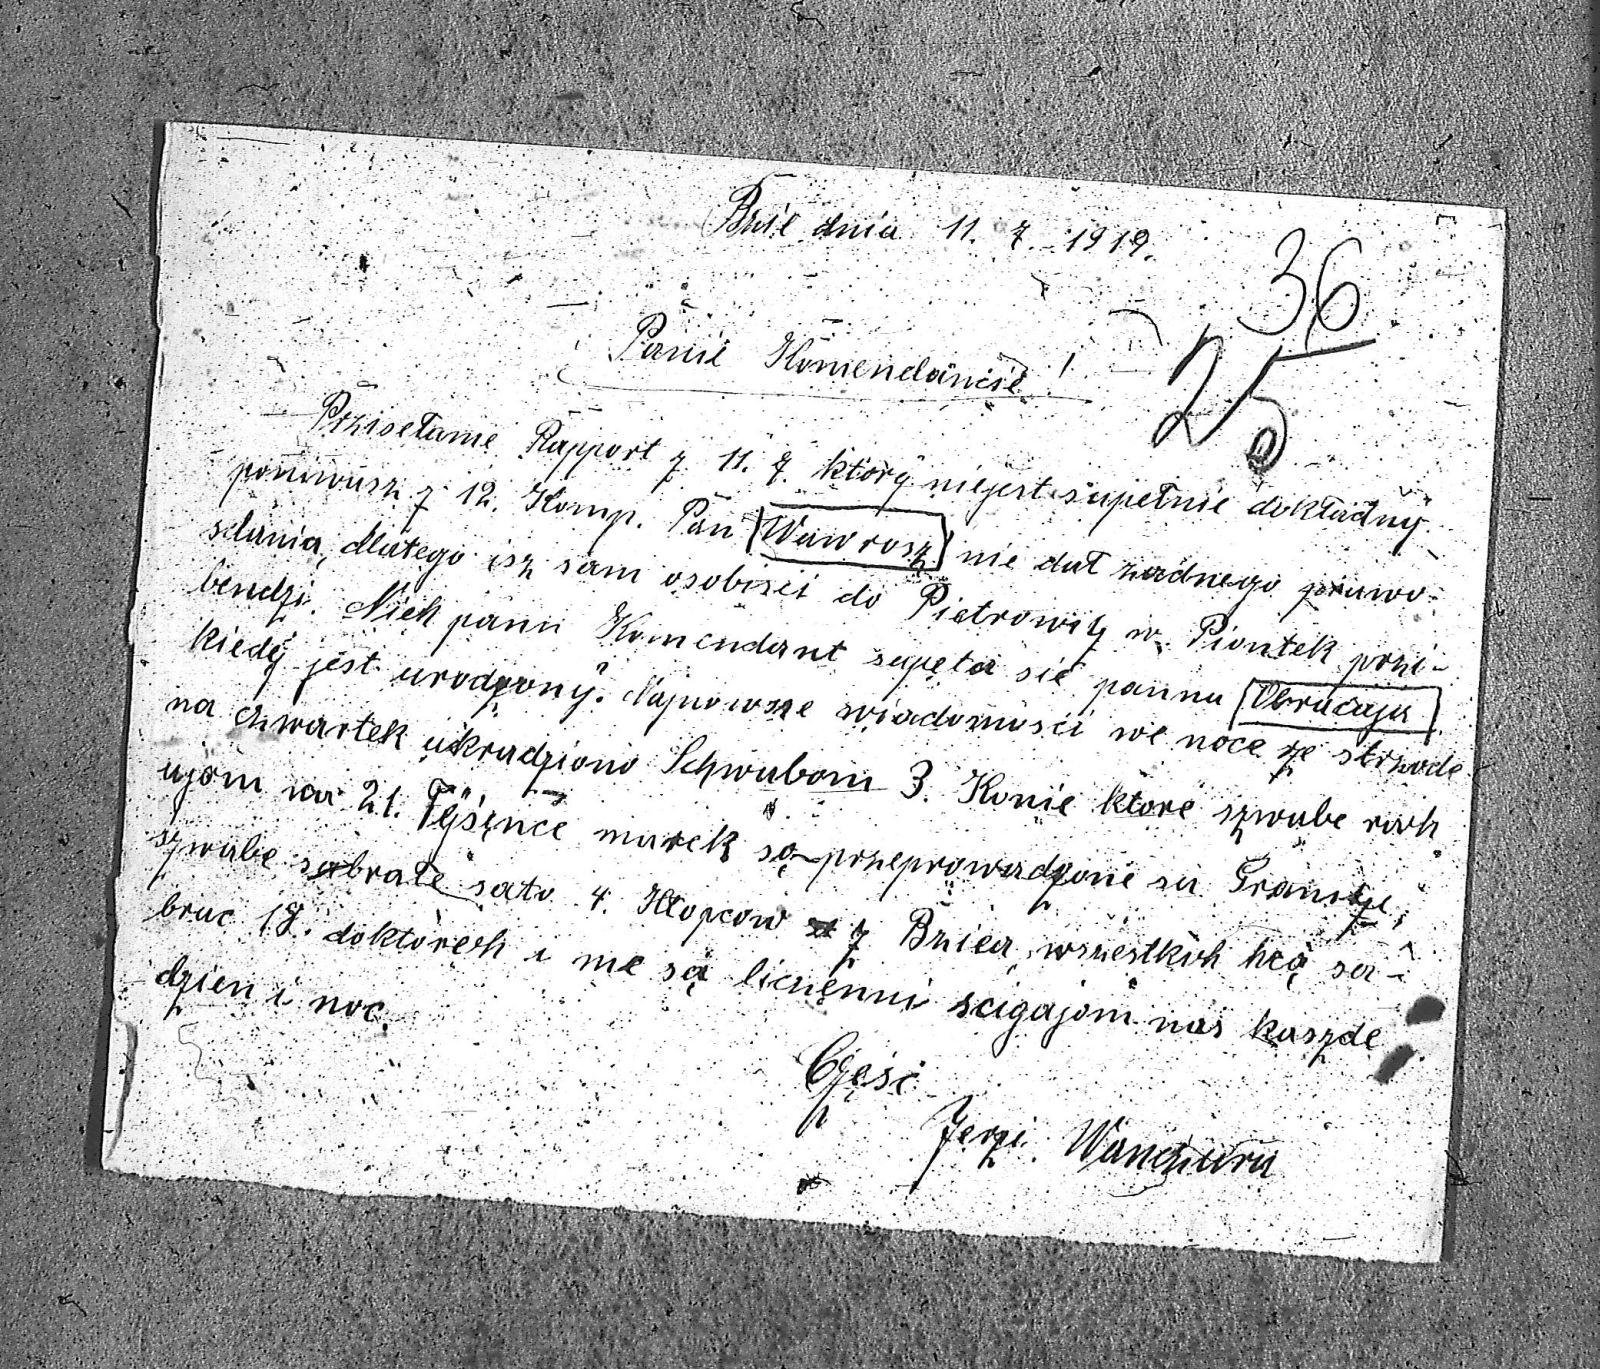 Bzie dnia 11. 7. 1919.
36
25
Panie Komendancie!
Przisełame Rapport z 11. 7. ktorÿ niejest supełnie dokładnÿ
poniewusz z 12. Komp. Pan Wawrosz nie dał zadnego zprawo-
sdania, dlatego isz sam osobisci do Pietrowitz w Piontek przi-
bendzi. Niek pann Komendant sapęta sie pannu Obracaja
kiedÿ jest urodzonÿ. Najnowsze wiadomosci we noce ze strzode
na czwartek ukradziono Schwabom 3. Konie ktore szwabe rach
ujom na 21. Tÿsięnce marek są przeprowadzone sa Granitze,
szwabe sabrałe sato 4. Hłopcow z Bziea, wszÿestkich hcą sa-
brac 18. doktorech i nie są liczęnni scigajom nas kaszde
dzien i noc.
Czesc
Jerzi Wanczura